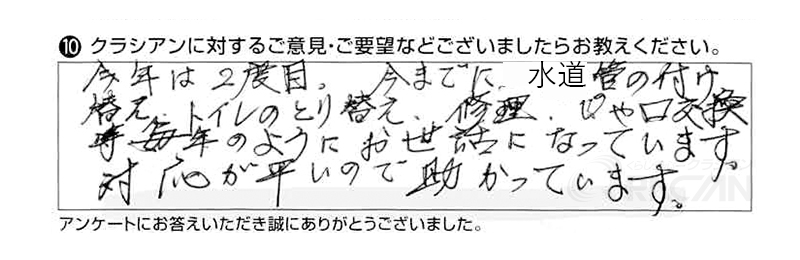 ❿ クラシアンに対するご意見・ご要望などございましたらお教えください。
今年は2度目。 今までに、水道管の付け
替え、トイレのとり替え、修理、じゃ口交換
等毎年のようにお世話になっています。
対応が早いので助かっています。
アンケートにお答えいただき誠にありがとうございました。